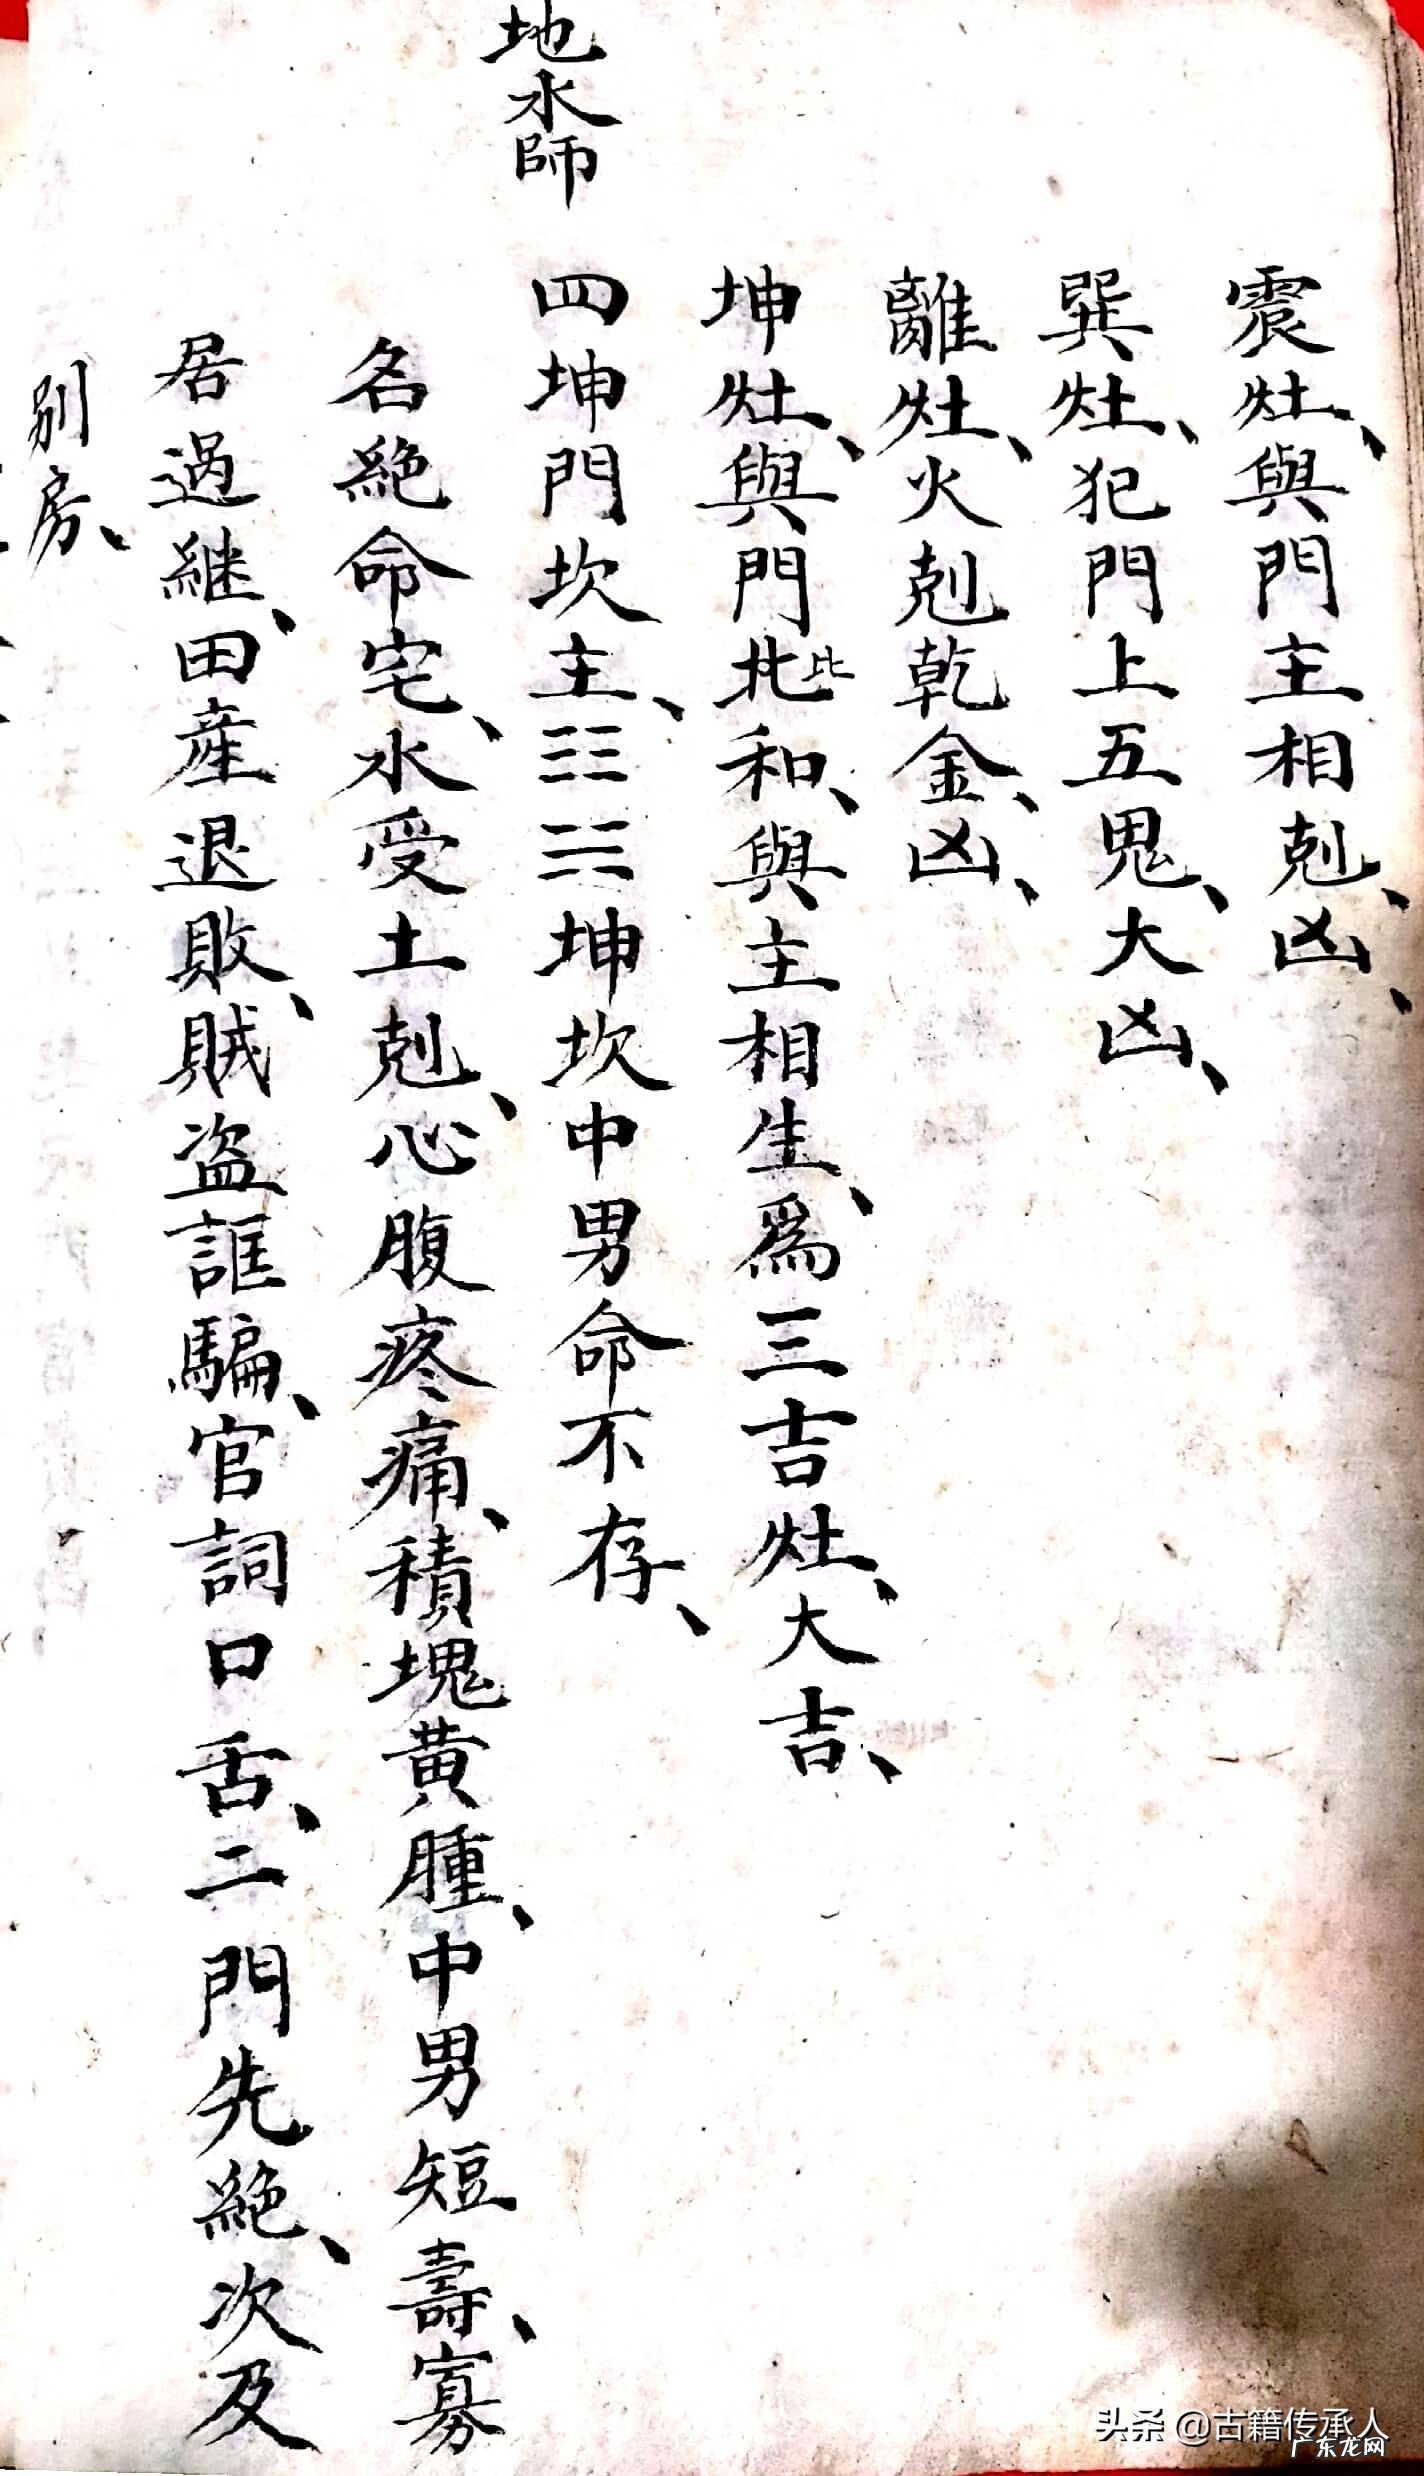 震灶、與門主相剋、凶、
巽灶、犯門上五鬼、大凶、
離灶、火剋乾金、凶、
坤灶、與門北比和、與主相生、爲三吉灶、大吉、
地水師
四坤門坎主、☷☵坤坎中男命不存、
名絶命宅、水受土剋、心腹疼痛、積塊黄腫、中男短壽、寡
居過継、田産退敗、賊盗誆騙、官詞口舌、二門先絶、次及
别房、
头条 @古籍传承人
广东龙网